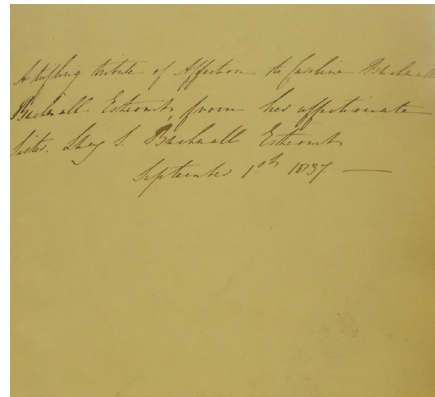 A trifling tribute of Affection to Caroline Bucknall
Bucknall Estcourt, from her affectionate
Sister. S. Bucknall Estcourt
September 1st 1837. —